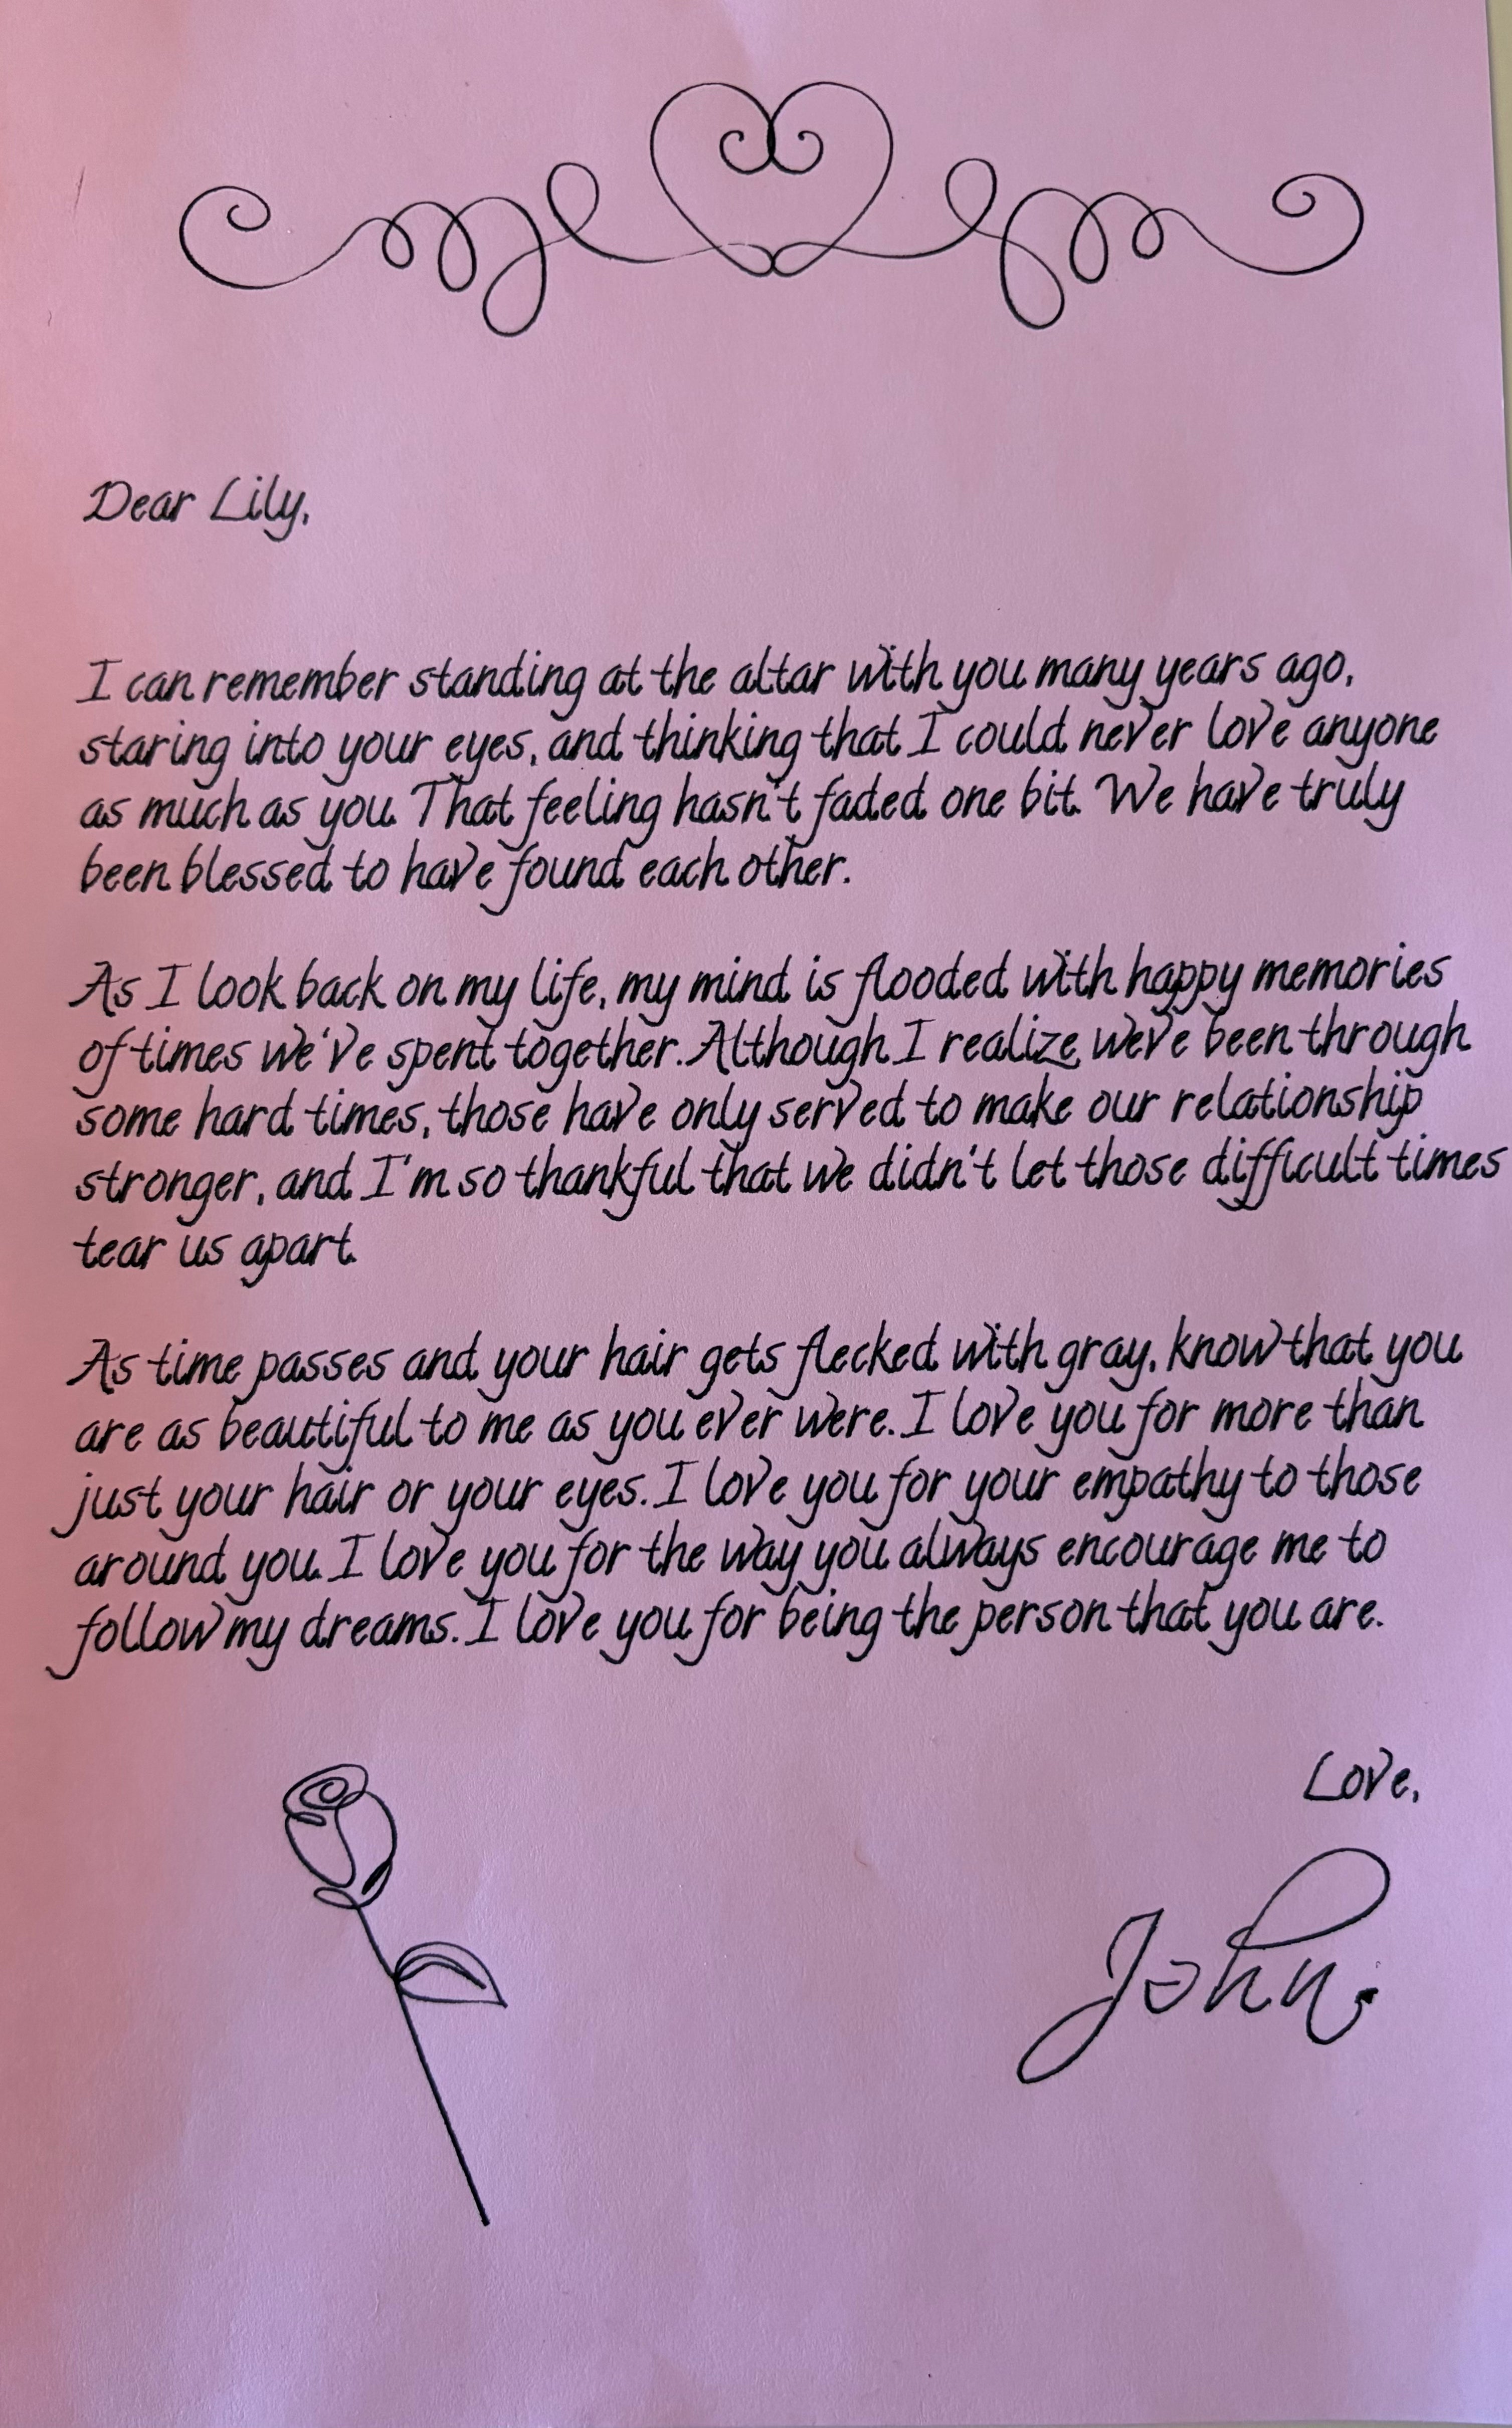 Dear Lily,
I can remember standing at the altar with you many years ago,
staring into your eyes, and thinking that I could never love anyone
as much as you. That feeling hasn't faded one bit. We have truly
been blessed to have found each other.
As I look back on my life, my mind is flooded with happy memories
of times we've spent together. Although I realize, we've been through
some hard times, those have only served to make our relationship
stronger, and I'm so thankful that we didn't let those difficult times
tear us apart.
As time passes and your hair gets flecked with gray, know that you
are as beautiful to me as you ever were. I love you for more than
just your hair or your eyes. I love you for your empathy to those
around you. I love you for the way you always encourage me to
follow my dreams. I love you for being the person that you are.
Love,
John.